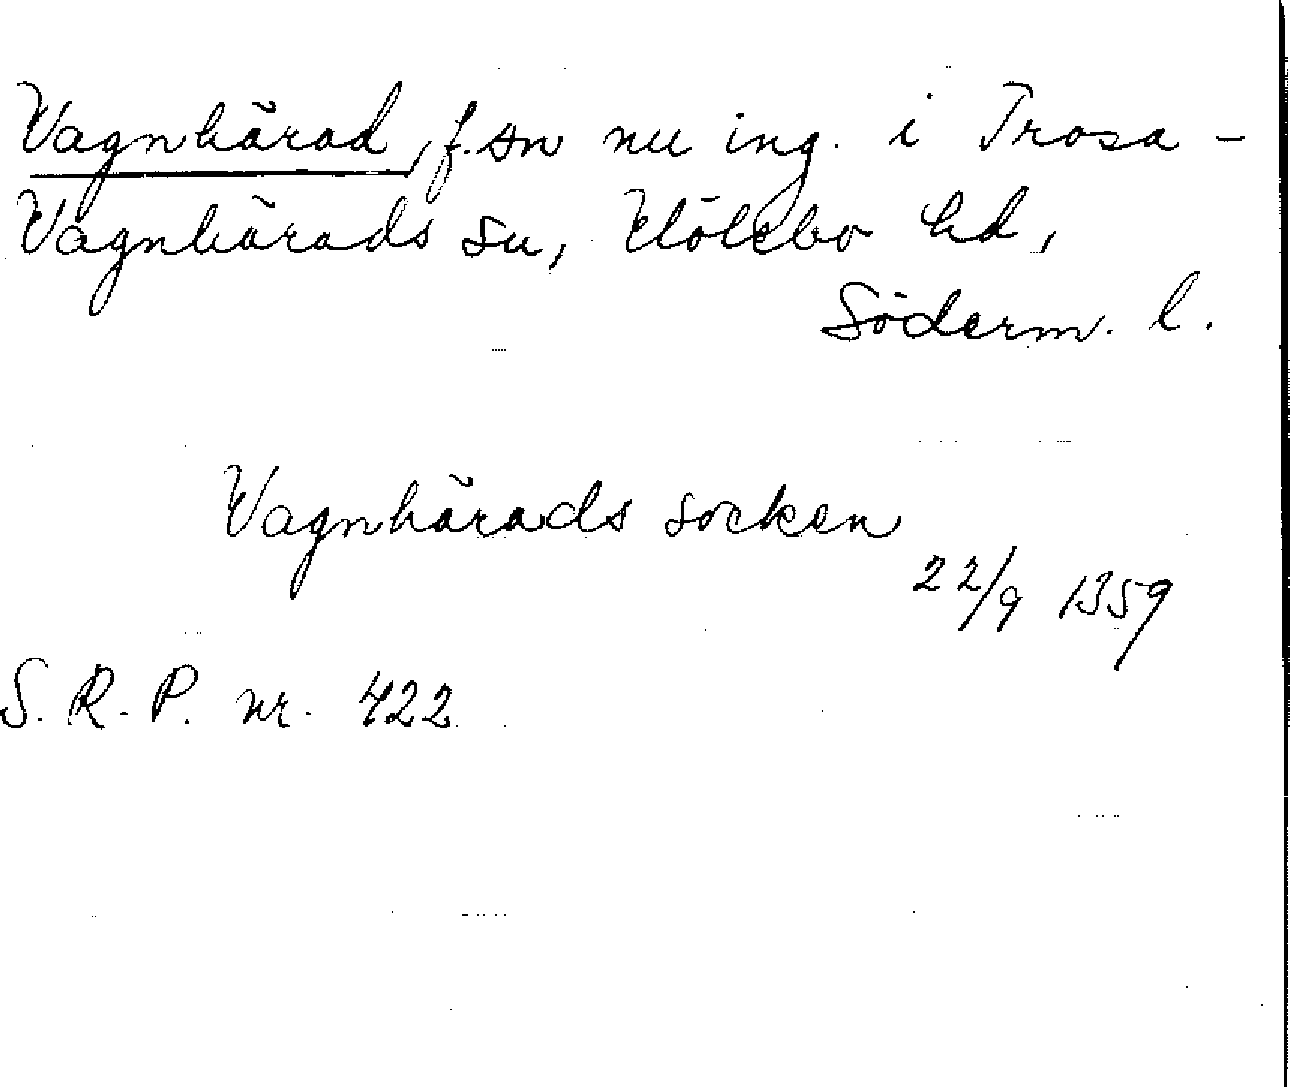 Vagnhärad, f. sn nu ing. i Trosa-
Vagnhärads sn, Hölebo hd,
Söderm. l.
Vagnhärads socken
22/9 1359
S.R.P. nr. 422